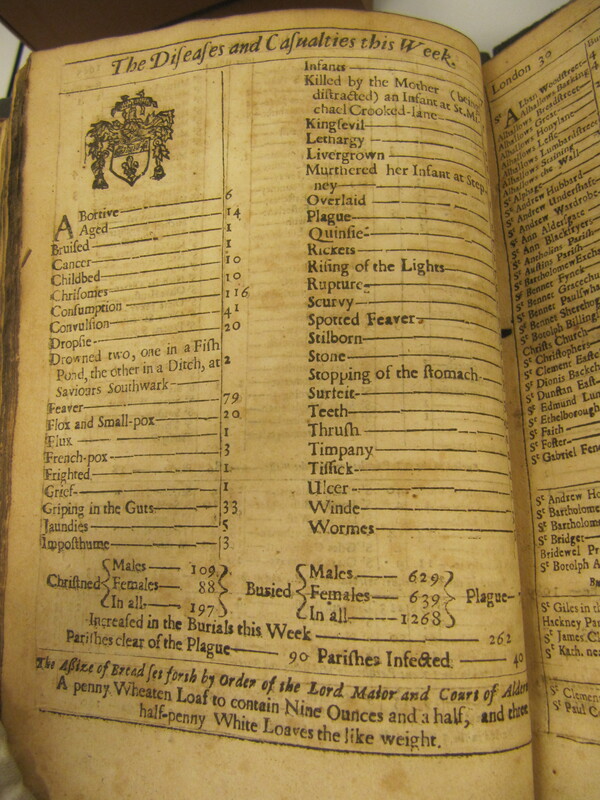 The Diſeaſes and Caſualties this Week.
ABortive 6
Aged 14
Bruiſed 1
Cancer 1
Childbed 10
Chriſomes 10
Conſumption 116
Convulſion 41
Dropſie 20
Drowned two, one in a Fiſh
Pond, the other in a Ditch, at 2
Saviours Southwark
Feaver 79
Flox and Small-pox 20
Flux 1
French-pox 3
Frighted 1
Grief 1
Griping in the Guts 33
Jaundies 5
Impoſthume 3
Infants
Killed by the Mother (being
diſtracted) an Infant at St. Mi-
chael Crooked-lane
Kingſevil
Lethargy
Livergrown
Murthered her Infant at Step-
ney
Overlaid
Plague
Quinſie
Rickets
Riſing of the Lights
Rupture
Scurvy
Spotted Feaver
Stilborn
Stone
Stopping of the ſtomach
Surfeit
Teeth
Thruſh
Timpany
Tiſſick
Ulcer
Winde
Wormes
Chriſtned
Males 109
Females 88
In all 197
Buried
Males 629
Females 639
In all 1268
Plague
Increaſed in the Burials this Week 262
Pariſhes clear of the Plague 90 Pariſhes Infected 40
The Aſſize of Bread ſet forth by Order of the Lord Maior and Court of Alder
A penny Wheaten Loaf to contain Nine Ounces and a half, and three
half-penny White Loaves the like weight.
London 39
St ALban Woodſtreet
Alhallows Barking
Alhallows Breadſtreet
Alhallows Great
Alhallows Honylane
Alhallows Leſſe
Alhallows Lumbardſtreet
Alhallows Staining
Alhallows the Wall
St Alphage
St Andrew Hubbard
St Andrew Underſhaft
St Andrew Wardrobe
St Ann Alderſgate
St Ann Blackfryers
St Antholins Pariſh
St Auſtins Pariſh
St Bartholomew Exch
St Bennet Fynck
St Bennet Gracechu
St Bennet Paulſwha
St Bennet Sherehog
St Botolph Billing
Chriſts Church
St Chriſtophers
St Clement Eaſtc
St Dionis Backch
St Dunſtan Eaſt
St Edmund Lum
St Ethelborough
St Faith
St Foſter
St Gabriel Fen
St Andrew Ho
St Bartholome
St Bartholom
St Bridget
Bridewel Pr
St Botolph A
St Giles in t
Hackney Par
St James C
St Kath. nea
St Clemen
St Paul C